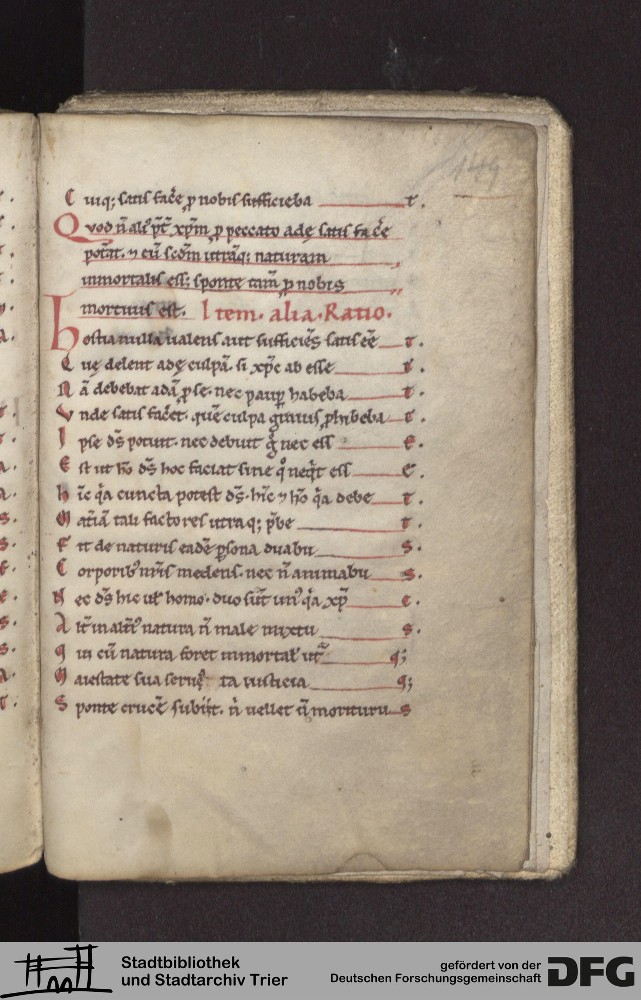 149
C uiq; satis facẽ p nobis sufficieba t.
Quod ñ aliˀ pt̃ xp̃m p peccato adę satis facẽ
potat̃. ⁊ eũ scd̃m utrãq; naturam
inmortalis ess; sponte tam̃ p nobis
mortuus est. Item. alia. Ratio.
Hostia nulla ualens aut sufficiẽs satis eẽ t.
Q uę delent adę culpã. si xp̃c ab esse t.
N ã debebat adã p se. nec paup habeba t.
V nde satis facẽt. quẽ culpa grauius phibeba t.
I pse ds̃ potuit. nec debuit g̃ nec ess E.
E st ut hõ ds̃ hoc faciat sine q̊ neq̃t ess E.
h ĩc q̃a cuncta potest ds̃. hĩc ⁊ hõ q̃a debe t.
M at̃iã tali factores utraq; p̃be t.
F it de naturis eadẽ psona duabu S.
C orporibˀ nr̃is medens. nec ñ animabu S.
N ec ds̃ hic uł homo. duo sũt unˀ q̃a xp̃ c.
A lt̃m alt̃iˀ natura ñ male mixtu s.
q in eũ natura foret inmortał ut̃ q;
M aiestate sua seruˀ ta iusticia q;
S ponte crucẽ subiit. ñ uellet ñ morituru s
Stadtbibliothek
und Stadtarchiv Trier
gefördert von der
Deutschen Forschungsgemeinschaft
DFG